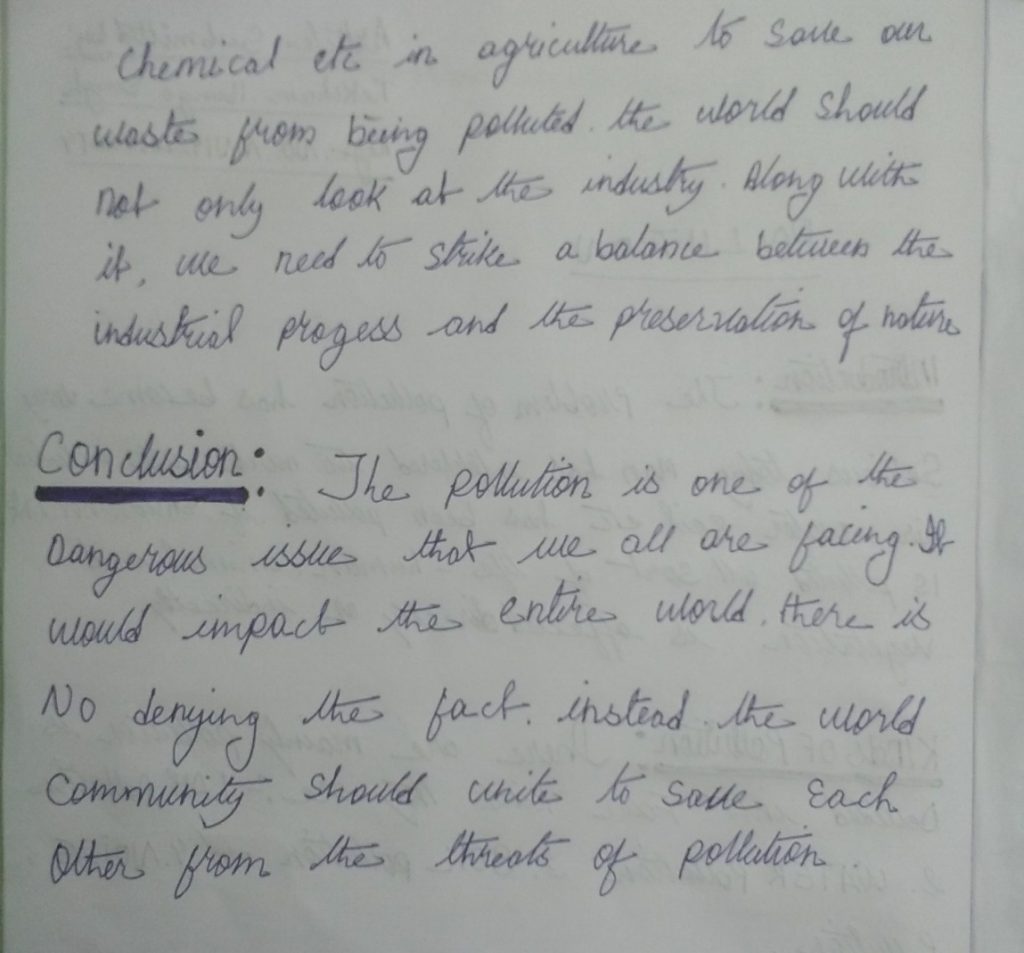 Chemical etc in agriculture to save our
waste from being polluted. the world should
not only look at the industry. Along with
it, we need to strike a balance between the
industrial progess and the preservation of nature
Conclusion: The pollution is one of the
Dangerous issue that we all are facing. It
would impact the entire world. there is
No denying the fact. instead. the world
Community should unite to save Each
Other from the threats of pollution